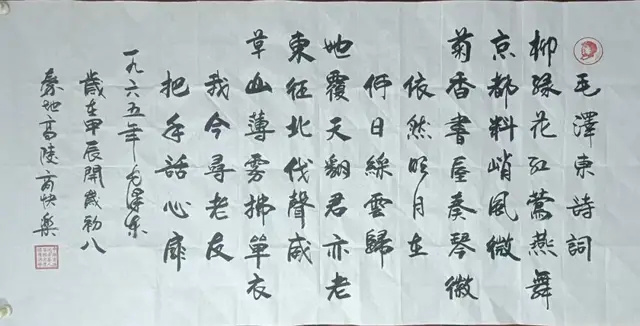 毛澤東詩詞
柳綠花红鶯燕舞
京都料峭风微
菊香書屋奏琴徽
依然明月在
何日綵雲歸
地覆天翻君亦老
東征北伐聲咸
草山薄雾拂單衣
我今尋老友
把手話心扉
一九六五年毛澤东
歲在甲辰開歲初八
秦地高陵商快樂